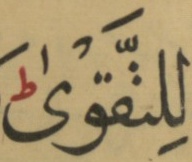 لِلتَّقْوٰىؕ